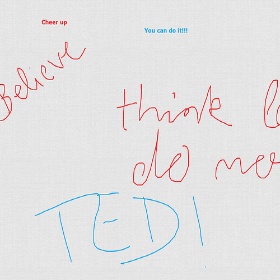 Cheer up
You can do it!!!
Believe
think
do
TEDI